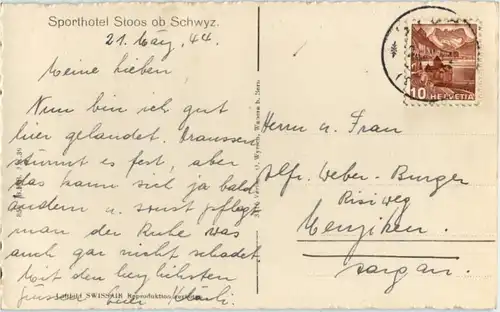 Sporthotel Stoos ob Schwyz.
21. März. 44.
Meine Lieben
Nun bin ich gut
hier gelandet. Draussen
stürmt es fest, aber
das kann sich ja bald
ändern u. sonst pflegt
man der Ruhe was
auch gar nicht schadet.
Mit den herzlichsten
Grüssen Euer
Luftbild SWISSAIR Reproduktion
Wyssen, Wabern b. Bern
10 HELVETIA
Herrn u. Frau
Alfr. Weber-Burger
Risiweg
Menziken.
Aargau.